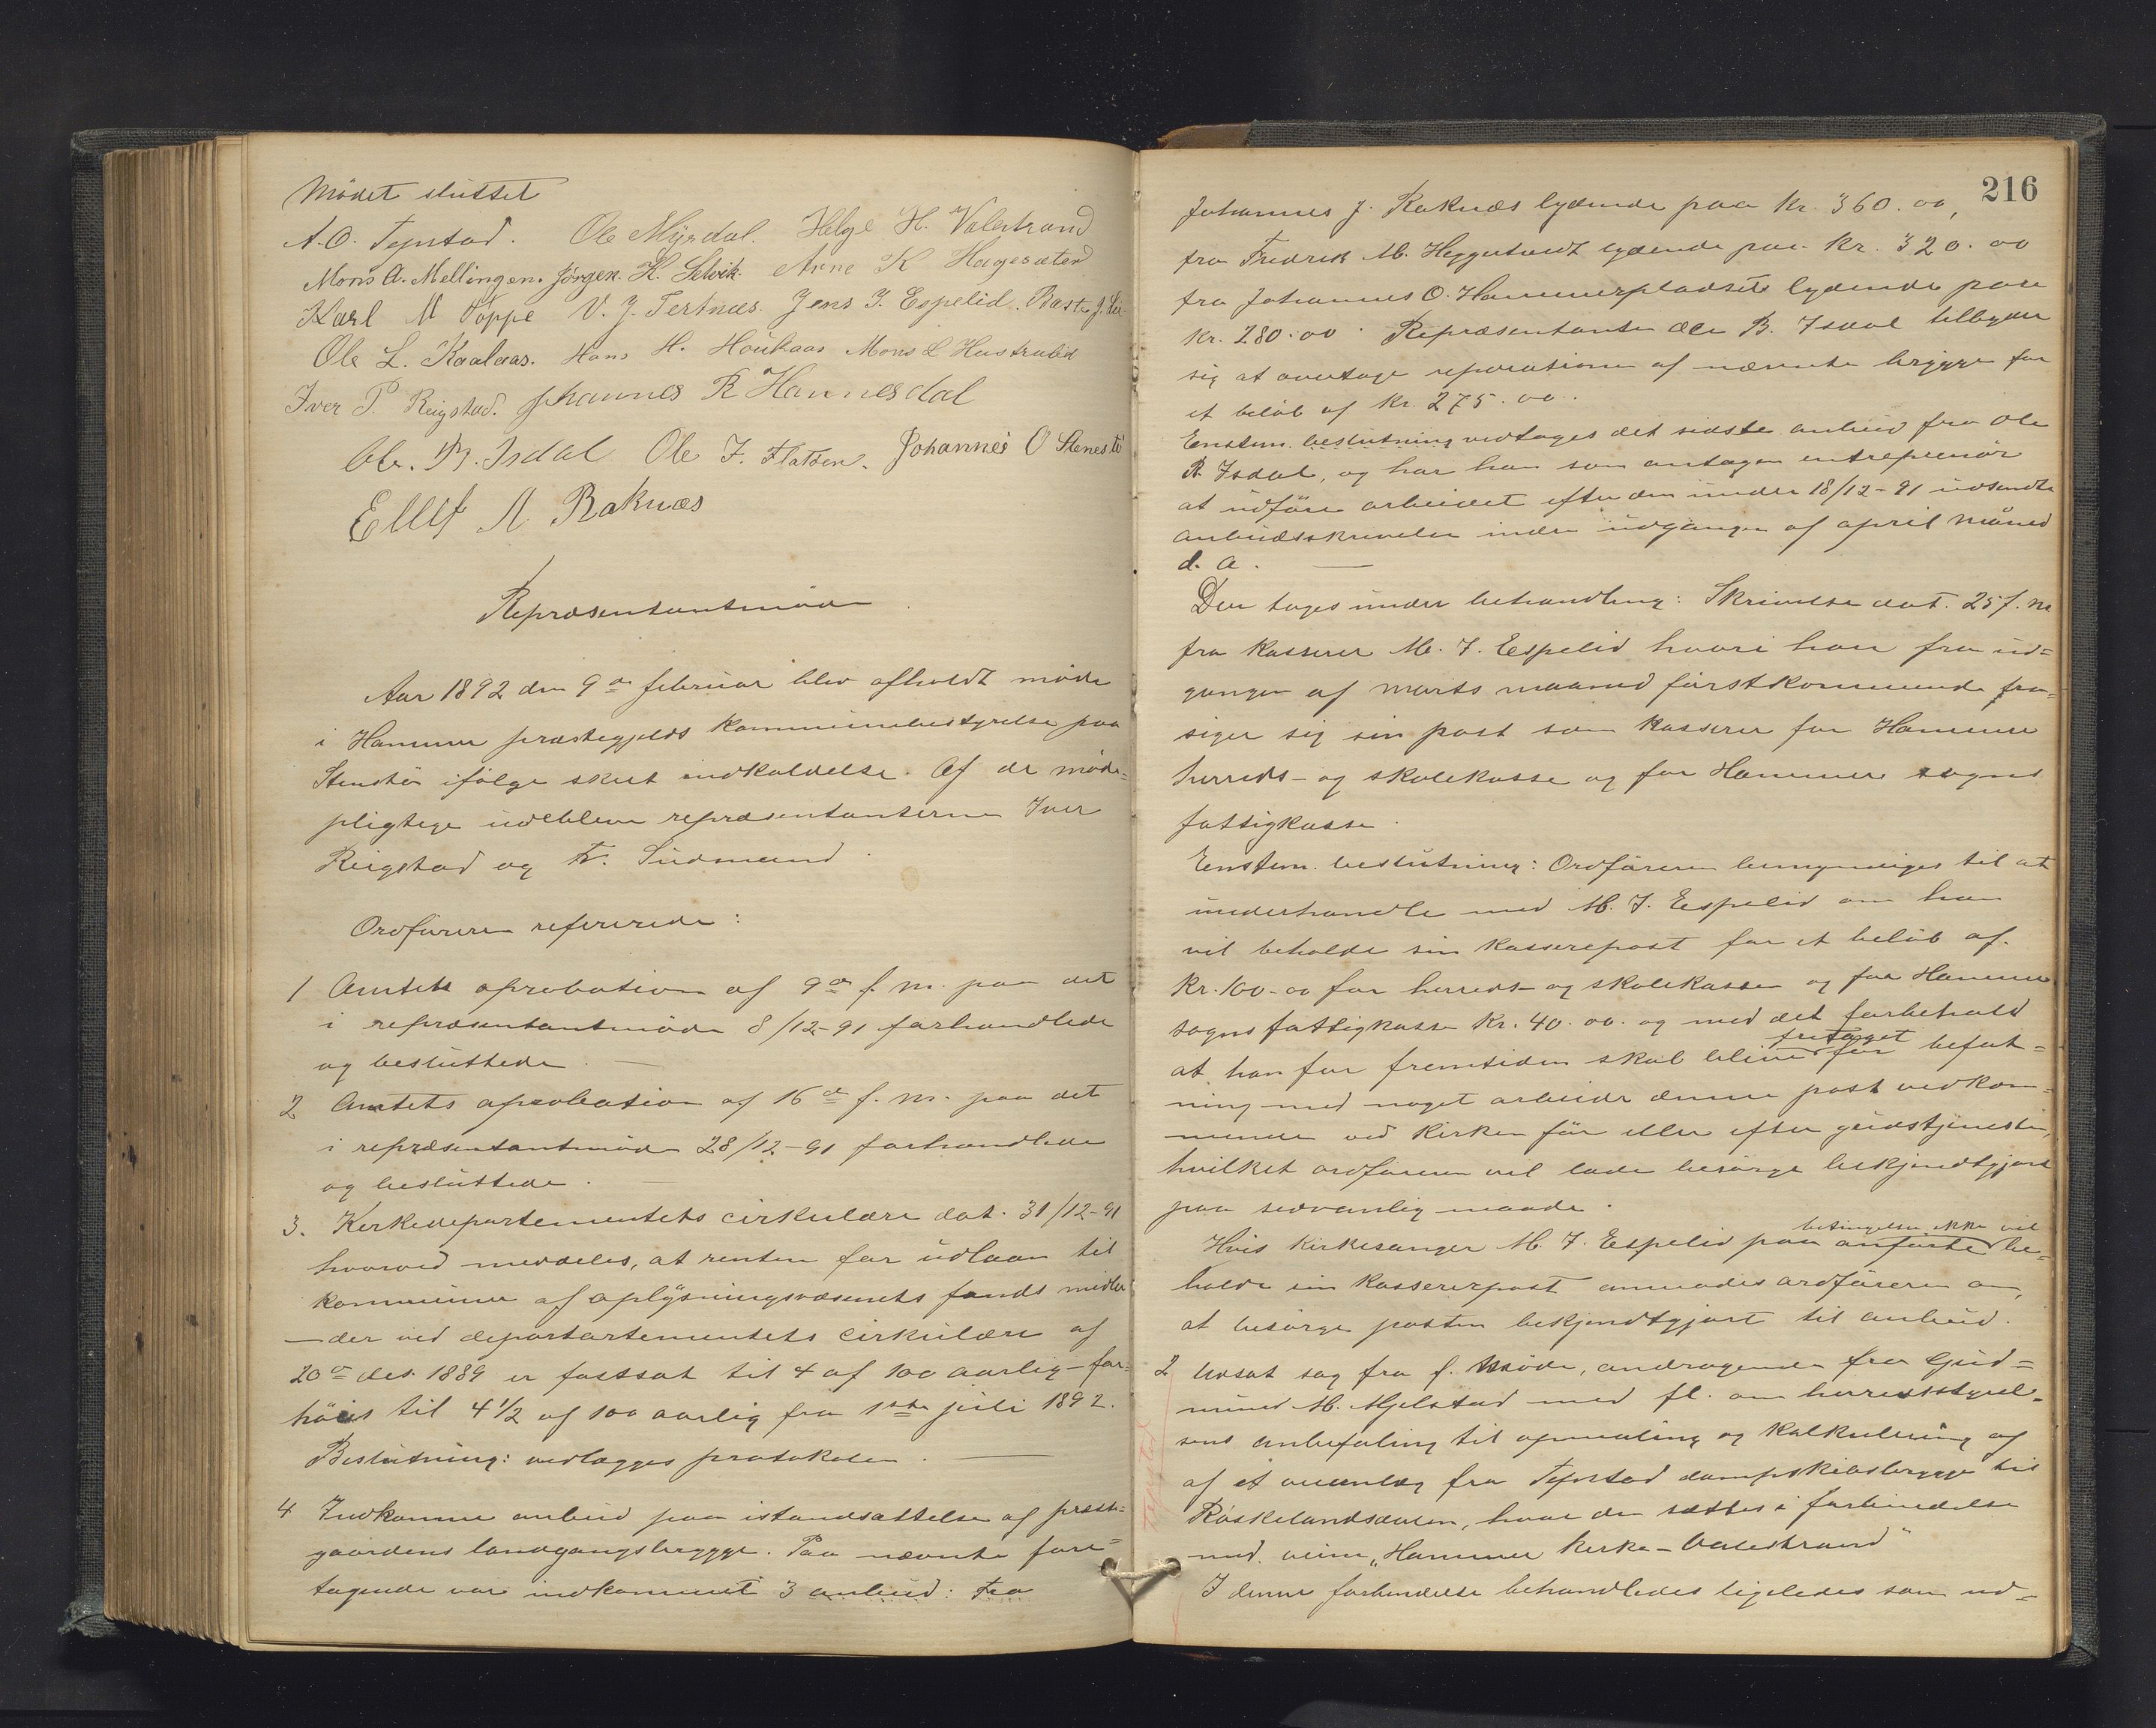 Mödet sluttet
A. O. Tepstad. Ole Myrdal. Helge H. Valestrand
Mons A. Mellingen. Jörgen. K. Selvik. Arne K Hagesæter
Karl M Toppe V. J. Tertnæs. Jens J. Espelid. Baste J.
Ole L. Kaalaas. Hans H. Houkaas Mons L Hustrulid
Iver P. Reigstad. Johannes R Hannesdal
Ole. B. Isdal Ole J. Flatöen. Johannes O Stenestö
Ellef A. Raknes
Repræsentantmöde
Aar 1892 den 9de februar blev afholdt möde
i Hammer præstegjelds kommunebestyrelse paa
Stenstö ifölge skeet indkaldelse. Af de möde=
pligtige udebleve repræsentanterne Iver
Reigstad og Fr. Sudmand.
Ordföreren refererede:
1 Amtets aprobation af 9de f. m. paa det
i repræsentantmöde 8/12-91 forhandlede
og besluttede. —
2 Amtets aprobation af 16de f. m. paa det
i repræsentantmöde 28/12-91 forhandlede
og besluttede. —
3. Kirkedepartementets cirkulære dat. 31/12-91
hvorved meddeles, at renten for udlaan til
kommuner af oplysningsvæsenets fonds midler
— der ved departartementets cirkulære af
20de des. 1889 er fastsat til 4 af 100 aarlig – for=
höies til 4 1/2 af 100 aarlig fra 1ste juli 1892.
Beslutning: vedlægges protokolen. —
4 Indkomne anbud paa istandsættelse af præste=
gaardens landgangsbrygge. Paa nævnte fore=
tagende var indkommet 3 anbud: Fra
216
Johannes J. Raknæs lydende paa kr. 360.00,
fra Fredrik M. Heggertveidt lydende paa kr. 320.00
fra Johannes O. Hammerpladsset lydende paa
kr. 280.00. Repræsentanten Ole B. Isdal tilbyder
sig at overtage reparationen af nævnte brygge for
et belöb af kr. 275.00.
Enstem. beslutning vedtages det sidste anbud fra Ole
B. Isdal, og har han som antagen entreprenör
at udföre arbeidet efter den under 18/12-91 udsendte
anbudsskrivelse inden udgangen af april måned
d. a. —
Der toges under behandling: Skrivelse dat. 25 f. m
fra kasserer M. J. Espelid hvori han fra ud=
gangen af marts maaned förstkommende fra=
siger sig sin post som kasserer for Hammer
herreds- og skolekasse og for Hammer sogns
fattigkasse.
Enstem. beslutning: Ordföreren bemyndiges til at
underhandle med M. J. Espelid om han
vil beholde sin kassererpost for et belöb af.
kr. 100.00 for herreds- og skolekassen og for Hammer
sogns fattigkasse kr. 40.00. og med det forbehold
at han for fremtiden skal blive fritaget for befat=
ning med noget arbeide denne post vedkom=
mende ved kirken för eller efter gudstjenesten,
hvilket ordföreren vil lade besörge bekjendtgjort
paa sedvanlig maade.
Hvis kirkesanger M. J. Espelid paa anförte betingelser ikke vil be=
holde sin kassererpost anmodes ordföreren om,
at besörge posten bekjendtgjort til anbud.
2 Udsat sag fra f. möde, andragende fra Gud=
mund M. Mjelstad med fl. om herredsstyrel=
sens anbefaling til opmaaling og kalkulering af
af et veianlæg fra Tepstad dampskibsbrygge til
Röskelandsdalen, hvor den sættes i forbindelse
med veien „Hammer kirke – Valestrand"
I denne forbindelse behandledes ligeledes som ud=